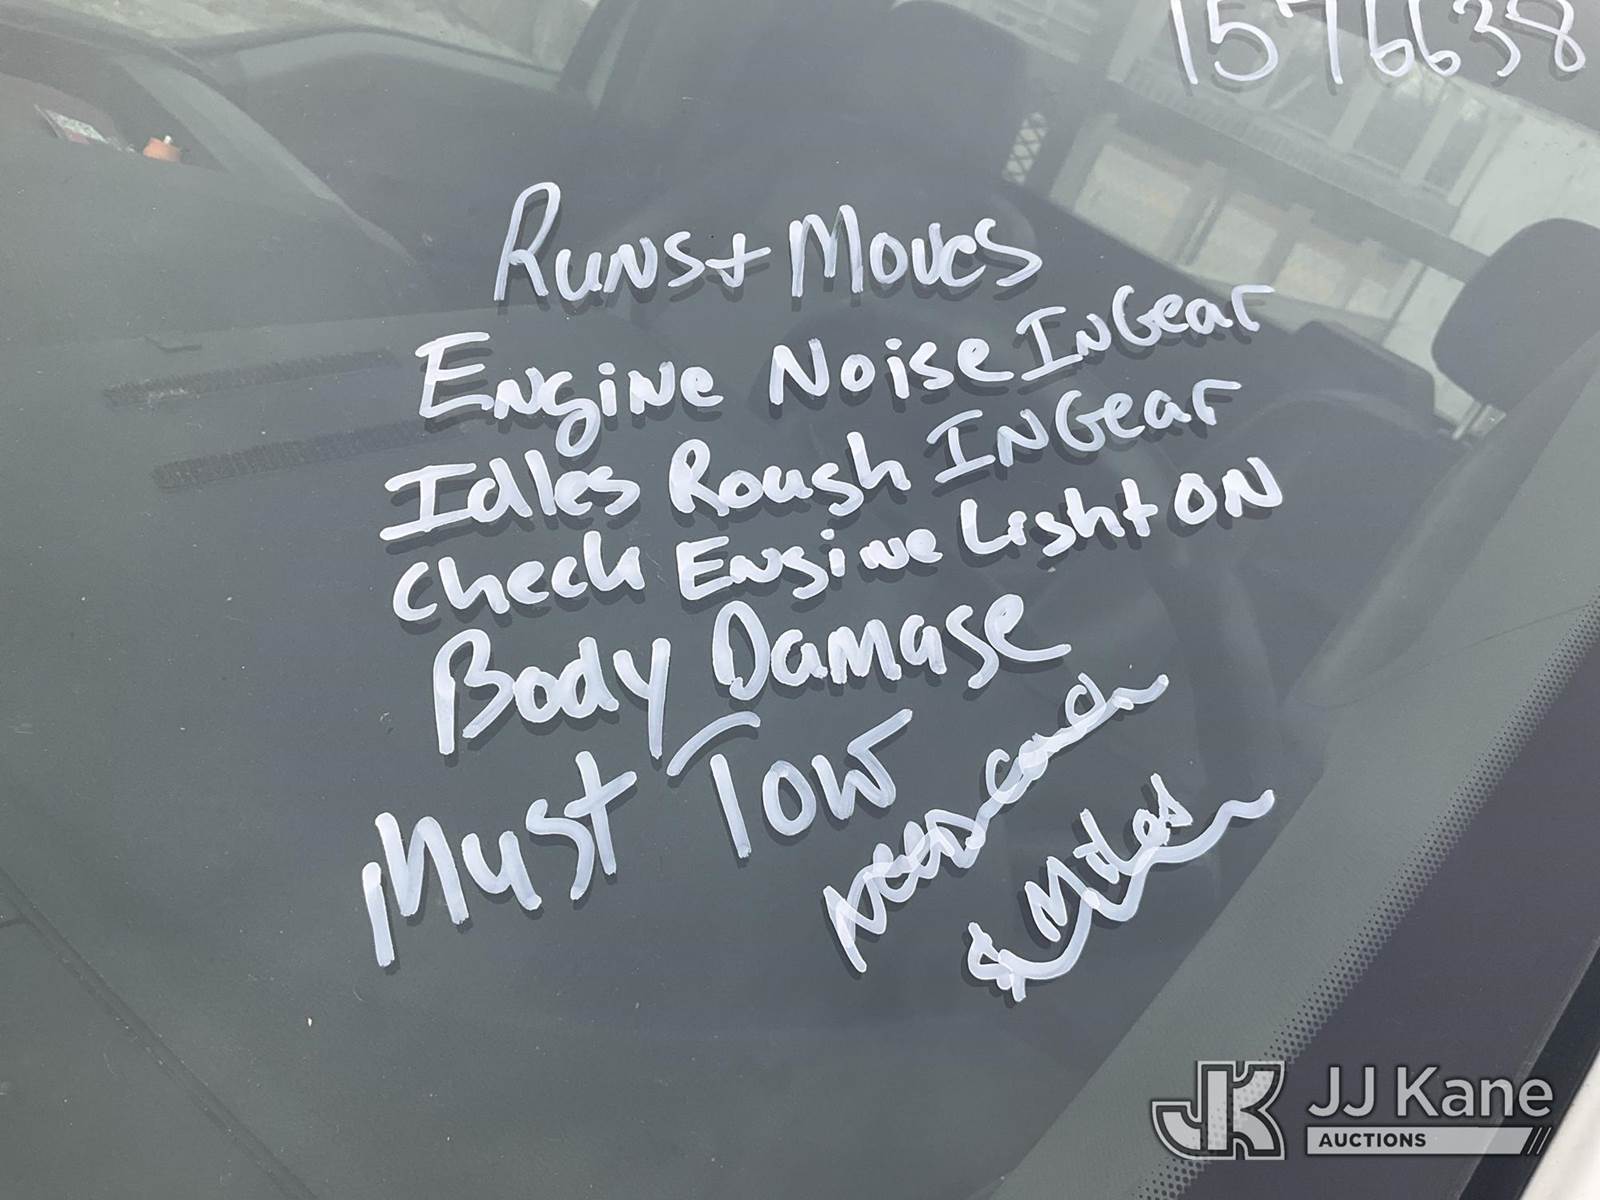 1576638
Runs + Moves
Engine Noise In Gear
Idles Rough In Gear
Check Engine Light ON
Body Damage
Must Tow
& Miles
JJ Kane
AUCTIONS